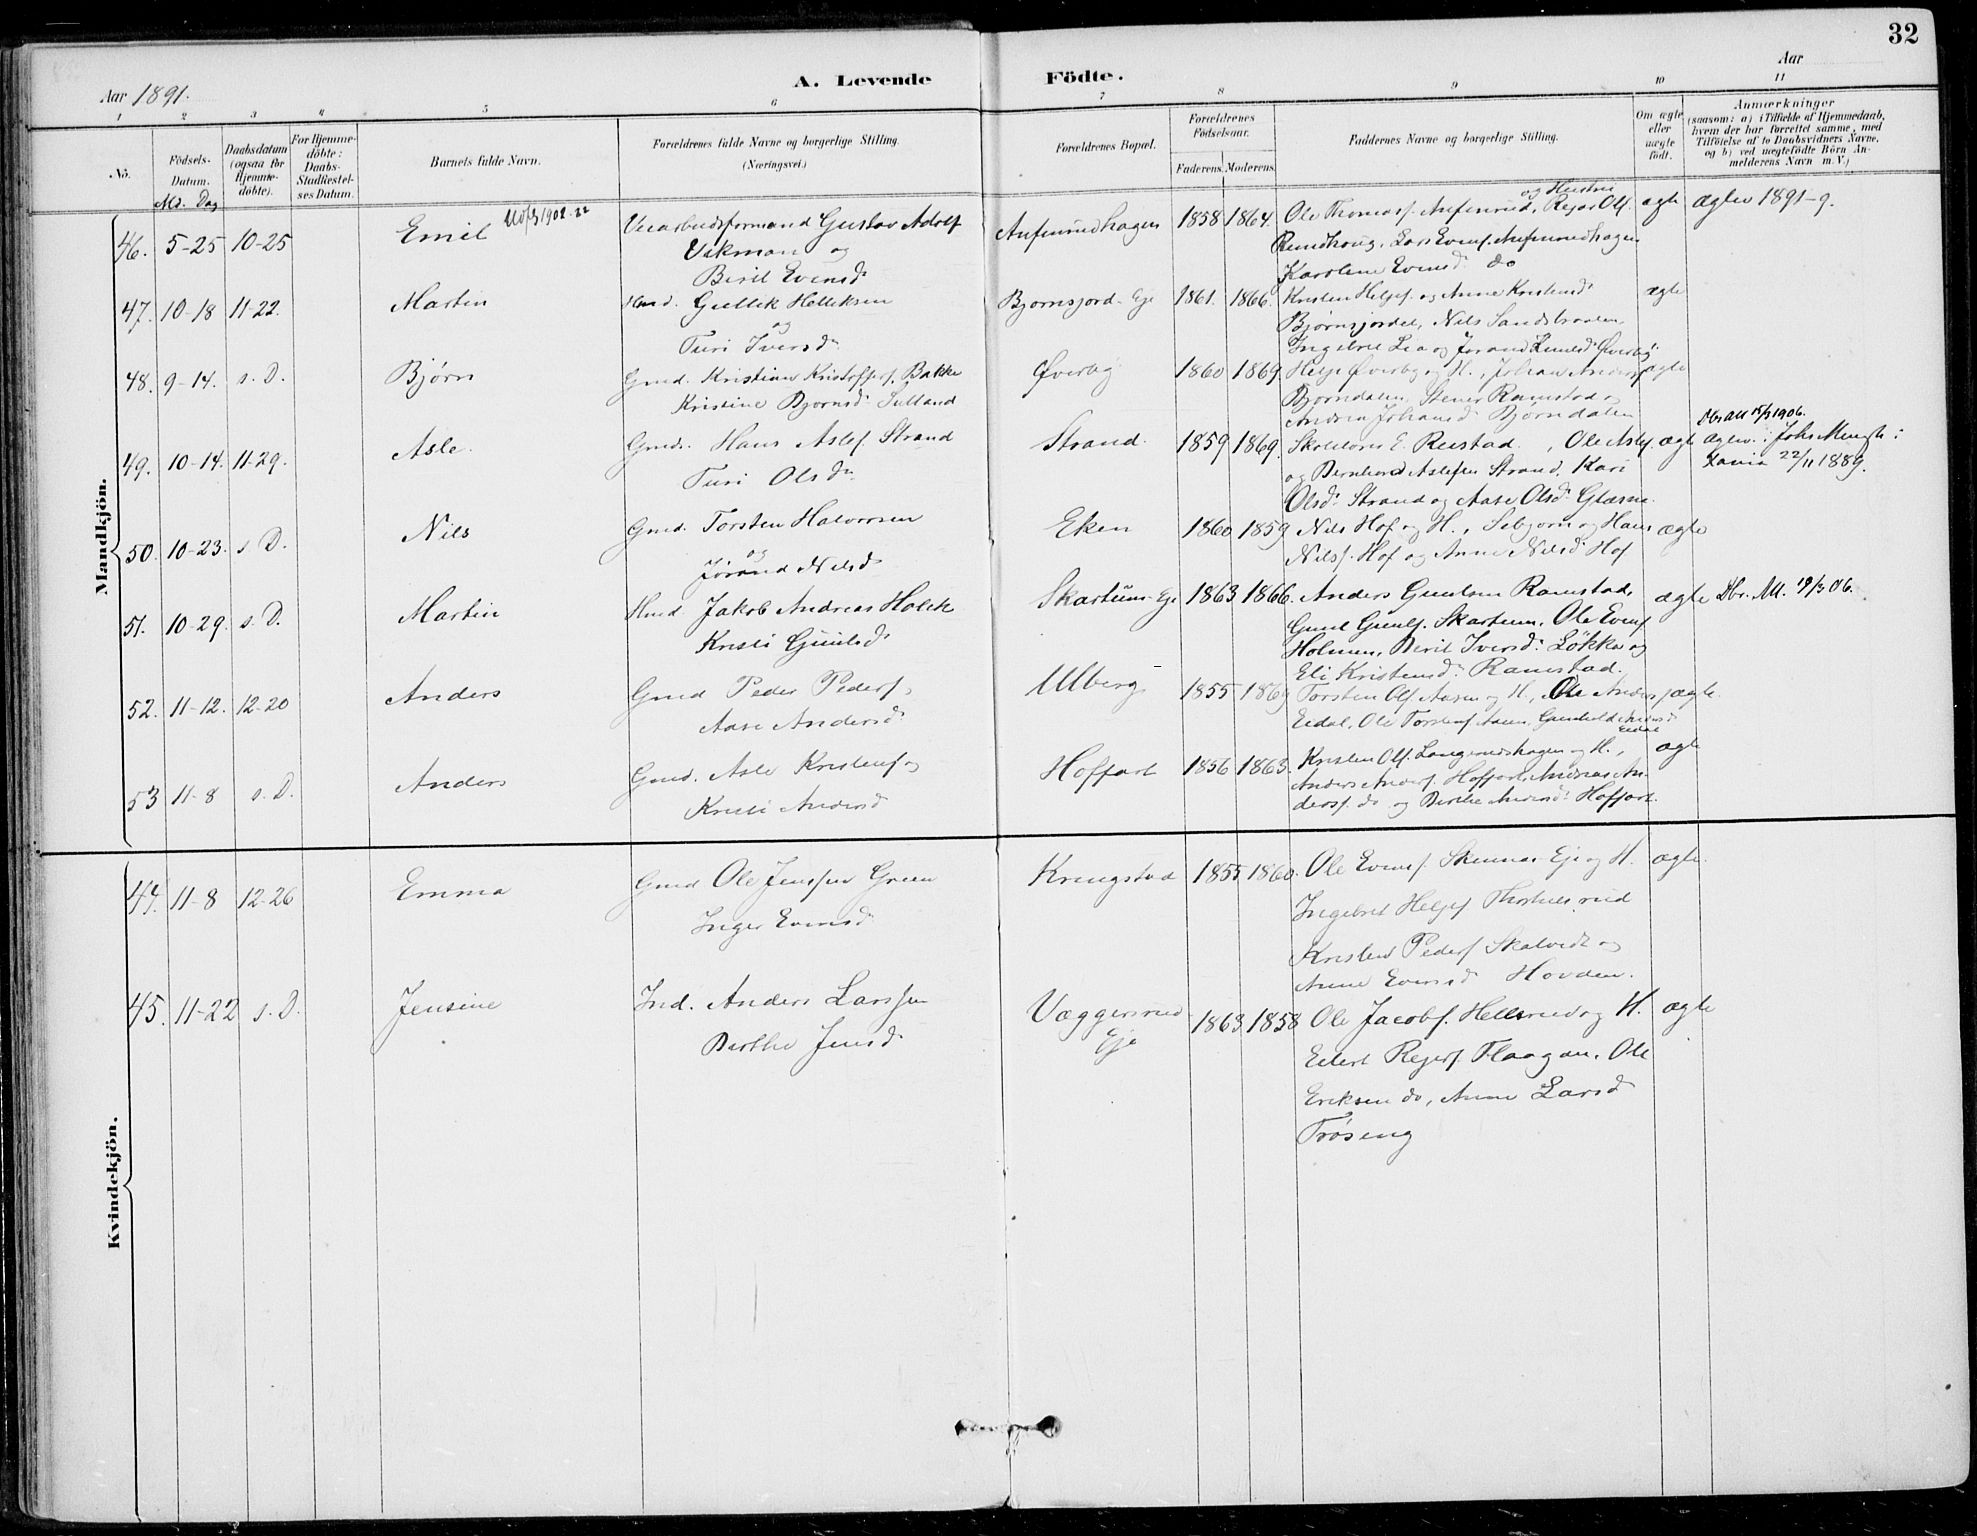 32
Aar 1891.
A. Levende Födte.
Aar
1 2 3 4 5 6 7 8 9 10 11
No.
Födsels-Datum.
Md. Dag
Daabsdatum (ogsaa for Hjemme-döbte).
For Hjemme-döbte: Daabs-Stadfæstel-ses Datum.
Barnets fulde Navn.
Forældrenes fulde Navne og borgerlige Stilling. (Næringsvei.)
Forældrenes Bopæl.
Forældrenes Födselsaar.
Faderens. Moderens.
Faddernes Navne og borgerlige Stilling.
Om ægte eller uægte födt.
Anmærkninger (saasom: a) i Tilfælde af Hjemmedaab, hvem der har forrettet samme, med Tilföielse af to Daabsvidners Navne, og b) ved uægtefödte Börn An-melderens Navn m. V.)
Mandkjön.
46. 5-25 10-25 Emil
Veiarbeidsformand Gustav Adolf
Vikman og
Berit Evensd.
Anfinrudhagen 1858 1864.
og Hustru
Ole Thomasf. Anfinrud, Reiar Olf.
Rundhoug, Lars Evenf. Anfinrudhagen
Karoline Evensd. do
ægte ægtev 1891-9.
47. 10-18 11-22. Martin
Hmd. Gullik Helliksen
og
Turi Iversd.
Bjornsjord-Eje 1861. 1866.
Kristen Helgef. og Anne Kristensd.
Bjørnsjordet, Nils Sandsbraaten,
Ingebret Lia og Jørand Knutsd. Øverby
ægte
48. 9-14. s. D. Bjørn
Gmd. Kristian Kristoffersf. Bakke
Kristine Bjornsd. Sulland
Øverby 1860 1869
Helge Øverby og H., Johan Andersf
Bjorndalen, Stener Ramstad og
Andrea Johansd. Bjorndalen
ægte
49. 10-14. 11-29. Asle.
Gmd. Hans Aslef. Strand
Turi Olsd.
Strand. 1859 1869.
Skolelærer E. Rustad, Ole Aslef.
og Bernhard Aslesen Strand, Kari
Olsd. Strand og Aase Olsd. Glæsne.
ægte
Db. att 15/3 1906.
ægtev. i Johs Mengh. i
Xania 22/11 1889.
50. 10-23. s. D. Nils
Gmd. Torsten Halvorsen
og
Jørand Nilsd.
Eken 1860 1859
Nils Hof og H., Sebjorn og Hans
Nilsf. Hof og Anne Nilsd. Hof
ægte
51. 10-29. s. D. Martin
Hmd. Jakob Andreas Holck
Kristi Gunulsd.
Skartum-Eje 1863 1866.
Anders Gunulsen Ramstad,
Gunul Gunulf. Skartum, Ole Evenf
Holmen, Berit Iversd. Løkka og
Eli Kristensd. Ramstad.
ægte Db. att. 19/3 06.
52. 11-12. 12-20 Anders
Gmd Peder Pedersf.
Aase Andersd.
Ulberg 1855 1869
Torsten Olf. Aasen og H., Ole Anders
Eidal, Ole Torstenf. Aasen, Gunhild Andersd.
Eidal
ægte.
53 11-8 s. D. Anders
Gmd. Asle Kristenf. og
Kristi Andersd
Hoffart 1856 1863.
Kristen Olf. Langerudshagen og H.,
Anders Andersf. Hoffart, Andreas An-
dersf. do og Birthe Andersd. Hoffart.
ægte
Kvindekjön.
44. 11-8 12-26 Emma
Gmd Ole Jenssen Green
Inger Evensd.
Kringstad 1855 1860.
Ole Evensf. Skinnas-Eje og H.
Ingebret Helgef
Kristen Pedersf Skalvedt og
Anne Evensd Hovden.
ægte.
45. 11-22 s. D. Jensine
Ind. Anders Larssen
Berthe Jensd.
Væggersrud
Eje
1863 1858
Ole Jacobf. Hellerud og H.
Edert Rejersf. Flaagan, Ole
Eriksen do, Anne Larsd.
Trøseng
ægte